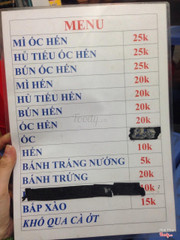 MENU
MÌ ỐC HẾN 25k
HỦ TIẾU ỐC HẾN 25k
BÚN ỐC HẾN 25k
MÌ HẾN 20k
HỦ TIẾU HẾN 20k
BÚN HẾN 20k
ỐC HẾN 20k
ỐC
HẾN 10k
BÁNH TRÁNG NƯỚNG 5k
BÁNH TRỨNG 20k
BẮP XÀO 15k
KHỔ QUA CÀ ỚT